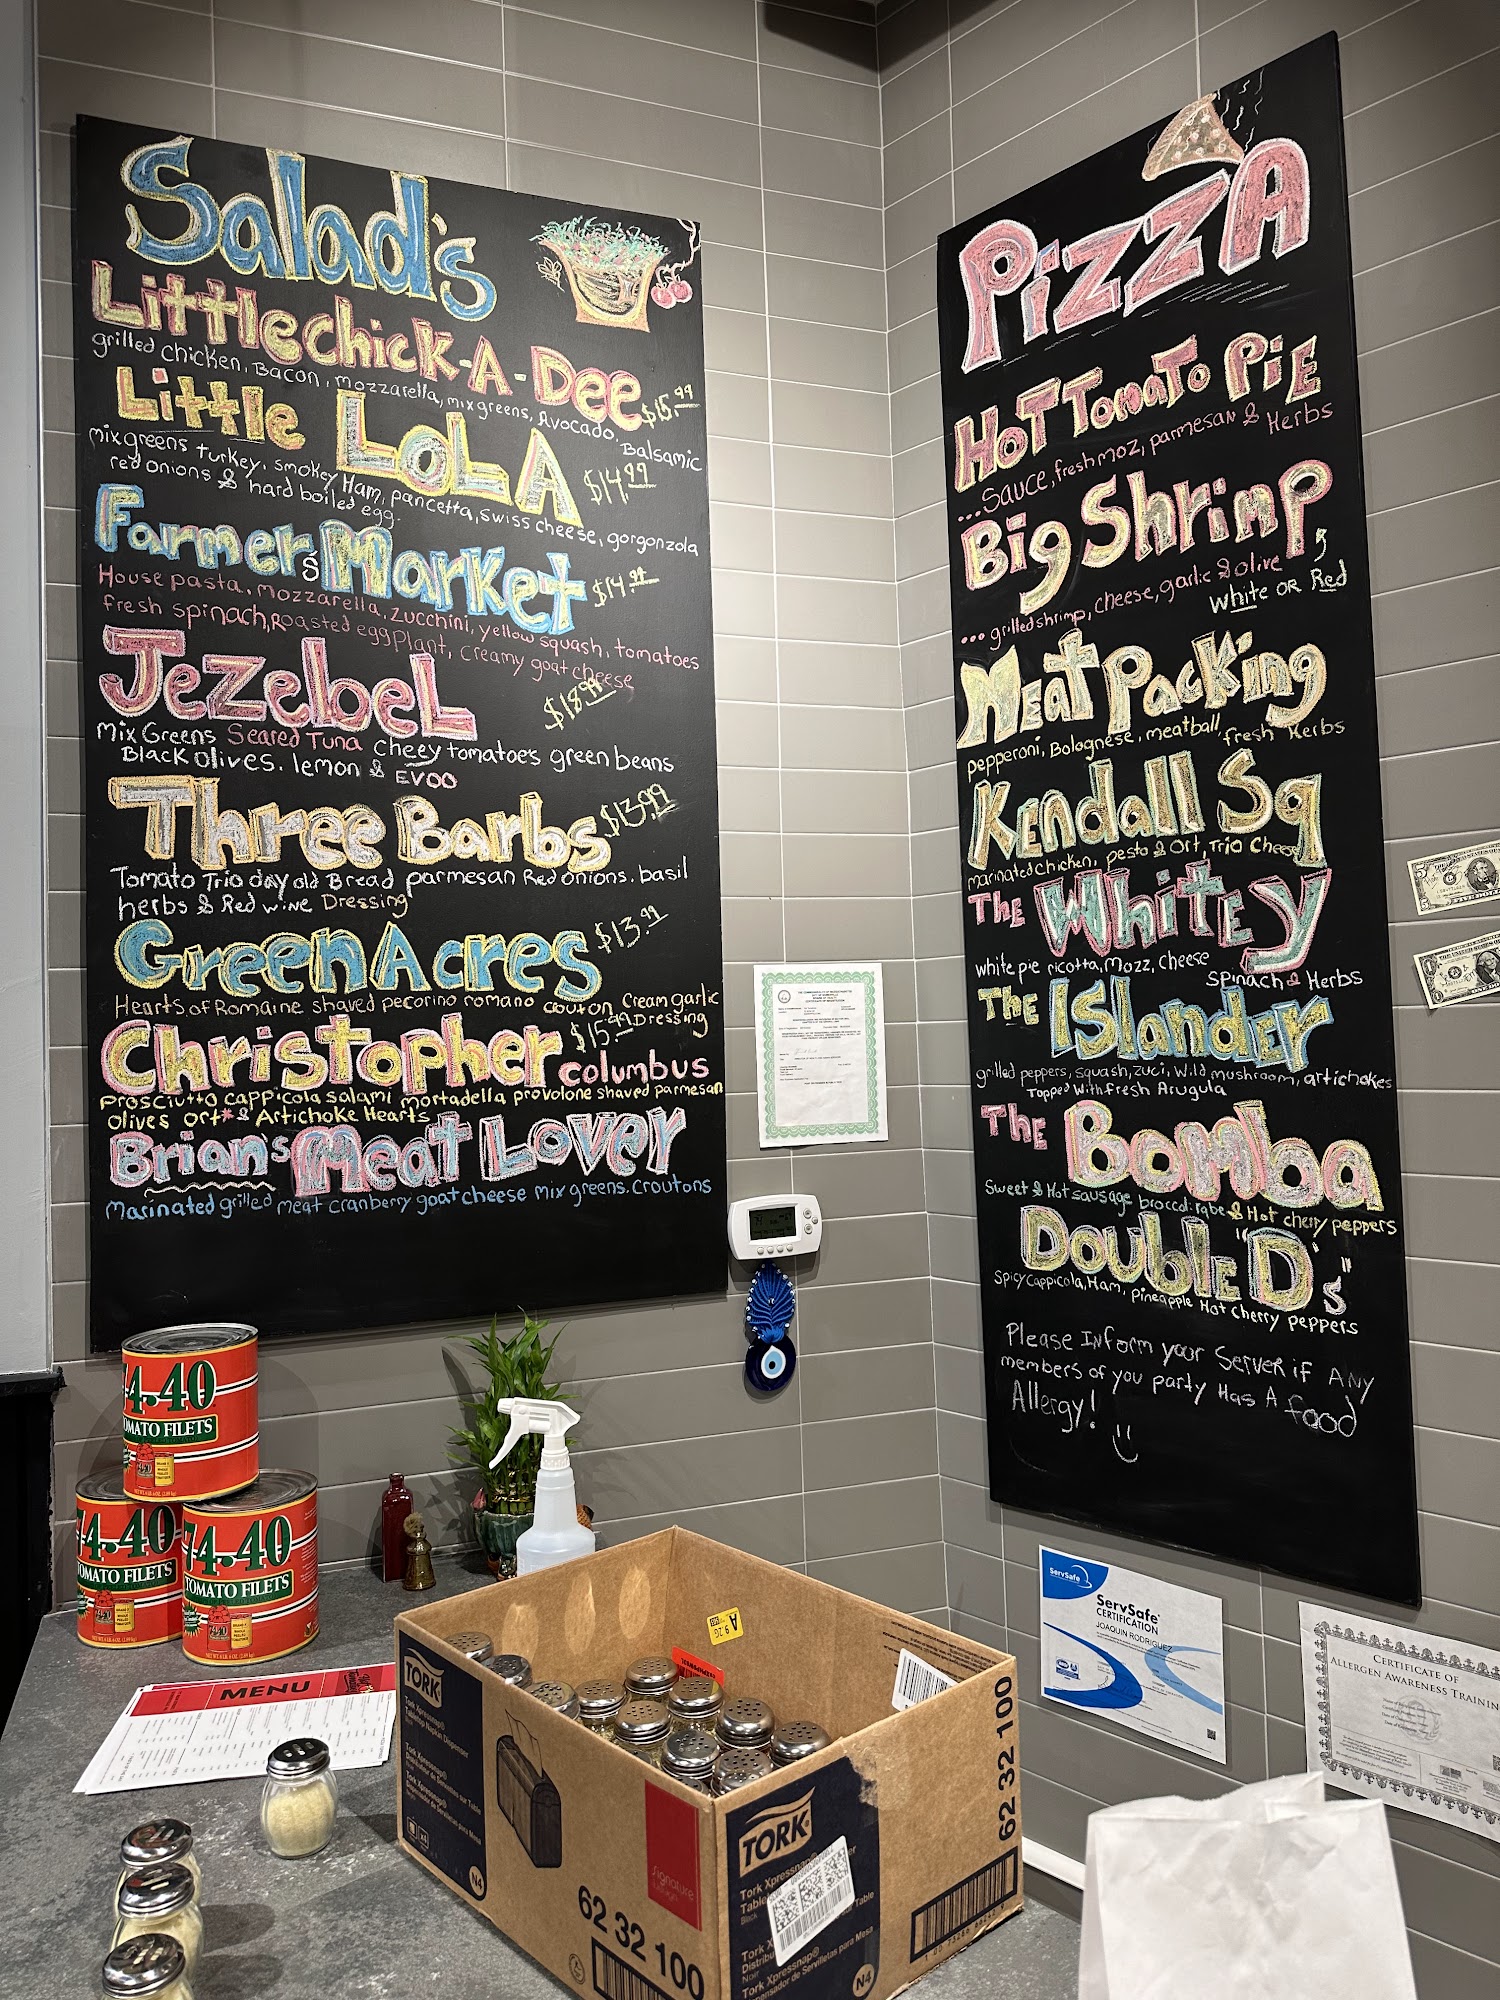 Salad's
LittlechicK-A-Dee
grilled chicken, Bacon, mozzarella, mixgreens, Avocado, Balsamic
$15.99
Little LOLA
$14.99
mixgreens turkey, smokey Ham, pancetta, swiss cheese, gorgonzola
red onions & hard boiled egg.
Farmer's Market
$14.99
House pasta, mozzarella, zucchini, yellow squash, tomatoes
fresh spinach, Roasted eggplant, creamy goat cheese
JezebeL
$18.99
Mix Greens Seared Tuna cheey tomatoe's green beans
Black olives. lemon & EVOO
Three Barbs
$13.99
Tomato Trio day old Bread parmesan Red onions. basil
herbs & Red wine Dressing
GreenAcres
$13.99
Hearts of Romaine shaved pecorino romano crouton Cream garlic
Dressing
Christopher columbus
$15.99
prosciutto cappicola salami mortadella provolone shaved parmesan
olives ort* & Artichoke Hearts
Brian's Meat Lover
Marinated grilled meat cranberry goat cheese mix greens. croutons
PizzA
HoT TomaTo PiE
...Sauce, fresh moz, parmesan & Herbs
Big Shrimp
...grilled shrimp, cheese, garlic & olive
white OR Red
Meat Packing
pepperoni, Bolognese, meatball, fresh Herbs
Kendall Sq
marinated chicken, pesto & Ort, Trio Cheese
THE WhitEy
white pie ricotta, Mozz, cheese
Spinach & Herbs
THE Islander
grilled peppers, squash, zuci, wild mushroom, artichokes
Topped with fresh Arugula
THE Bomba
Sweet & Hot sausage broccoli rabe & Hot cherry peppers
Double "D's"
Spicy cappicola, Ham, pineapple Hot cherry peppers
Please Inform your Server if Any
members of you party Has A food
Allergy!
74·40
TOMATO FILETS
74·40
TOMATO FILETS
74·40
TOMATO FILETS
MENU
ServSafe
ServSafe
CERTIFICATION
JOAQUIN RODRIGUEZ
CERTIFICATE OF
ALLERGEN AWARENESS TRAINING
TORK
Tork Xpressnap®
Tabletop Napkin Dispenser
signature
N4
62 32 100
TORK
Tork Xpressnap®
N4
62 32 100
A 9 2G